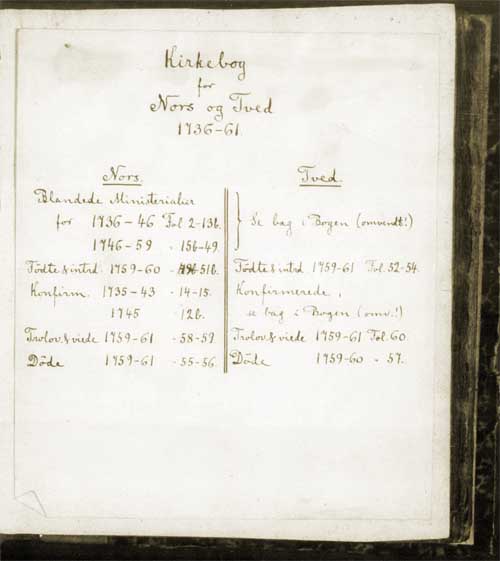 Kirkebog
for
Nors og Tved
1736-61
Nors.
Blandede Ministerialier
for 1736-46 Fol. 2-13b.
1746-59 - 15b-49.
Födte & intrd. 1759-60 - 51b.
Konfirm. 1735-43 - 14-15.
1745 12b.
Trolov. & viede 1759-61 - 58-59.
Döde 1759-61 - 55-56.
Tved.
Se bag i Bogen (omvendt!)
Födte & intrd. 1759-61 Fol. 52-54.
Konfirmerede,
se bag i Bogen (omv.!)
Trolov. & viede 1759-61 Fol. 60.
Döde 1759-60 - 57.